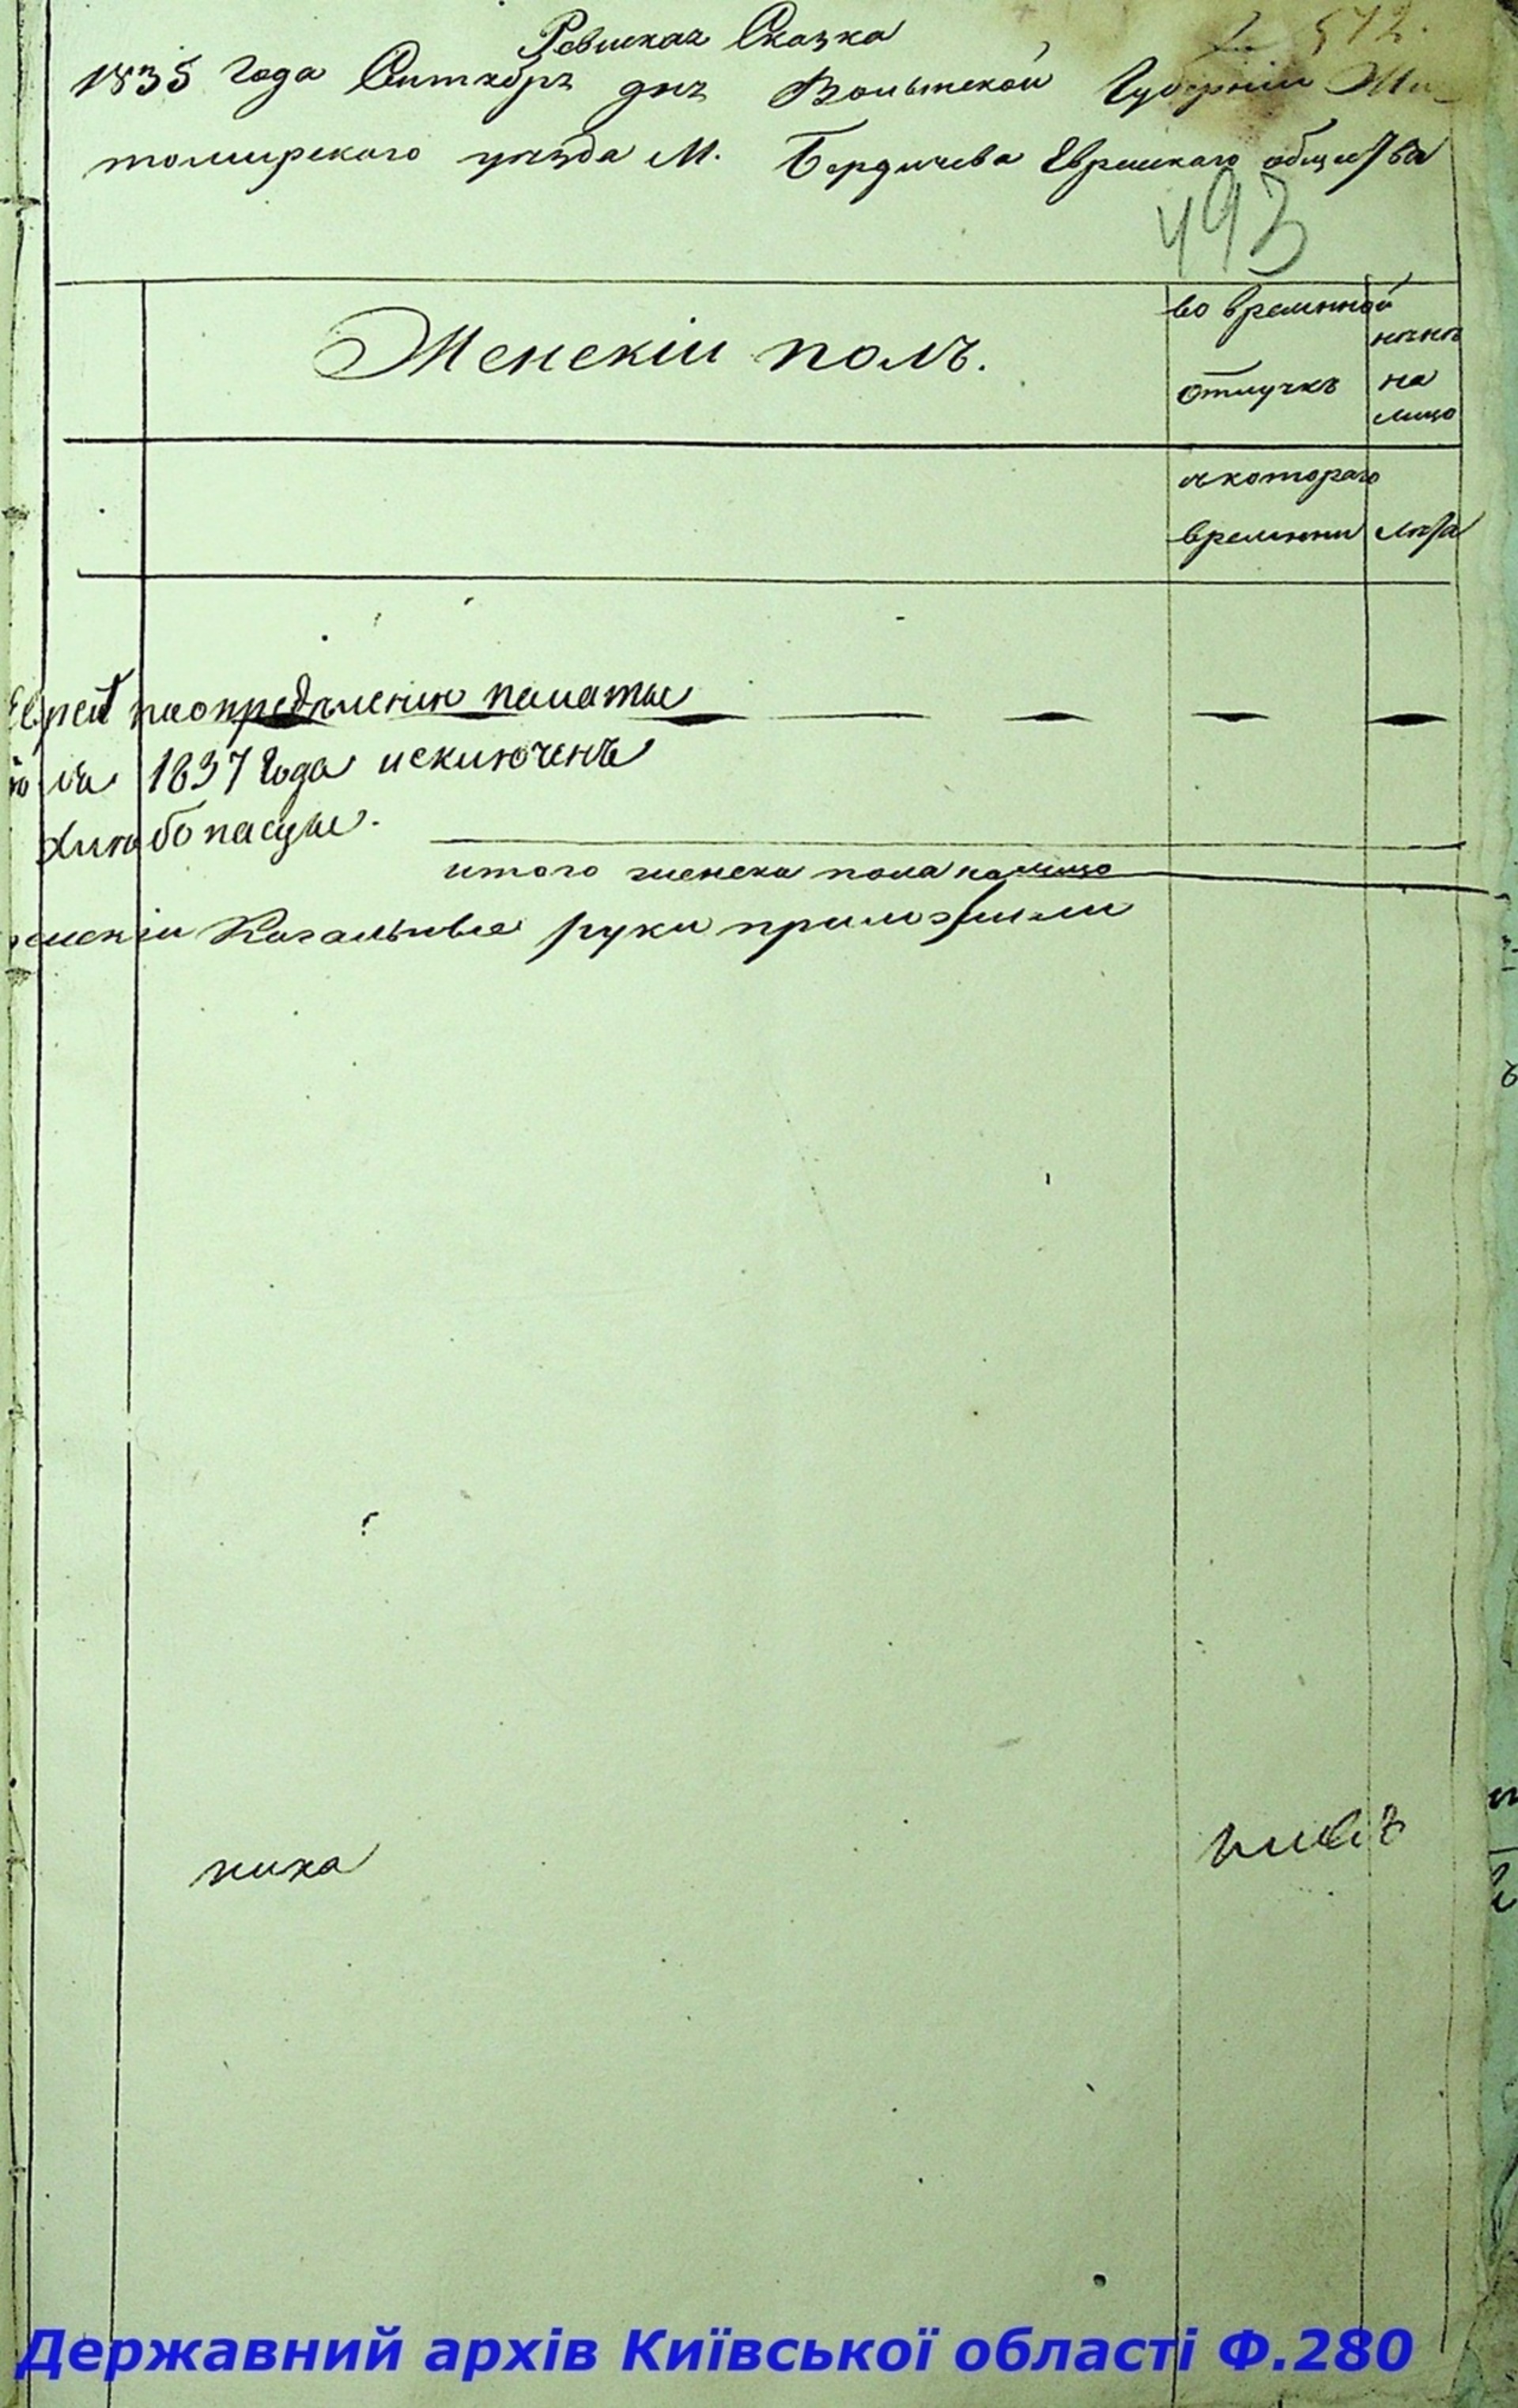 Ревизкая Сказка
572.
1835 Года Сентября дня Волынской Губерніи Жи-
томирскаго уезда М. Бердичева Еврейскаго общества
493
Женскій полъ.
во временной
отлучкѣ
нынѣ
на
лицо
съкотораго
времянни
лѣта
Еврей поопределенію палаты
1837 года исключенъ
хлебопасцы.
итого женска пола налицо
Кагальные руки приложили
Державний архів Київської області Ф.280